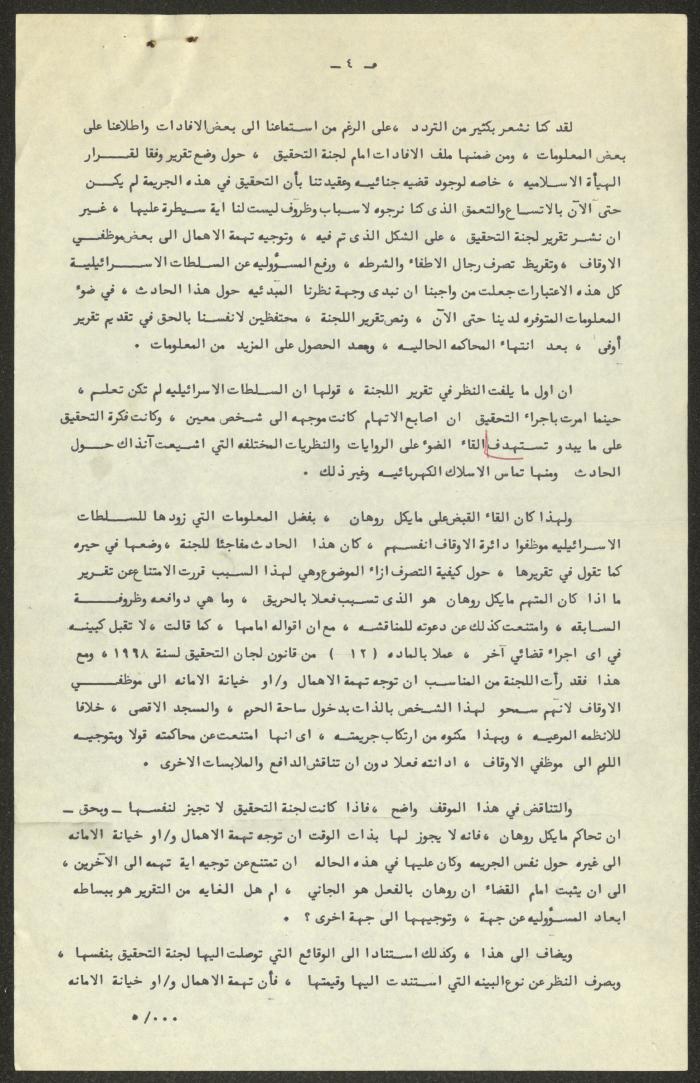 ـ ٤ ـ
لقد كنا نشعر بكثير من التردد ، على الرغم من استماعنا الى بعض الافادات واطلاعنا على
بعض المعلومات ، ومن ضمنها ملف الافادات امام لجنة التحقيق ، حول وضع تقرير وفقا لقرار
الهيأة الاسلاميه ، خاصه لوجود قضيه جنائيه وعقيدتنا بأن التحقيق في هذه الجريمة لم يكن
حتى الآن بالاتساع والتعمق الذى كنا نرجوه لاسباب وظروف ليست لنا اية سيطرة عليها ، غير
ان نشر تقرير لجنة التحقيق ، على الشكل الذى تم فيه ، وتوجيه تهمة الاهمال الى بعض موظفي
الاوقاف ، وتقريظ تصرف رجال الاطفاء والشرطه ، ورفع المسؤوليه عن السلطات الاسرائيلية
كل هذه الاعتبارات جعلت من واجبنا ان نبدى وجهة نظرنا المبدئيه حول هذا الحادث ، في ضوء
المعلومات المتوفره لدينا حتى الآن ، ونص تقرير اللجنة ، محتفظين لانفسنا بالحق في تقديم تقرير
أوفى ، بعد انتهاء المحاكمه الحاليه ، وبعد الحصول على المزيد من المعلومات .
ان اول ما يلفت النظر في تقرير اللجنة ، قولها ان السلطات الاسرائيليه لم تكن تعلم ،
حينما امرت باجراء التحقيق ان اصابع الاتهام كانت موجهه الى شخص معين ، وكانت فكرة التحقيق
على ما يبدو تستهدف القاء الضوء على الروايات والنظريات المختلفه التي اشيعت آنذاك حول
الحادث ومنها تماس الاسلاك الكهربائيه وغير ذلك .
ولهذا كان القاء القبض على مايكل روهان ، بفضل المعلومات التي زودها للسلطات
الاسرائيليه موظفوا دائرة الاوقاف انفسهم ، كان هذا الحادث مفاجئا للجنة ، وضعها في حيره
كما تقول في تقريرها ، حول كيفية التصرف ازاء الموضوع وهي لهذا السبب قررت الامتناع عن تقرير
ما اذا كان المتهم مايكل روهان هو الذى تسبب فعلا بالحريق ، وما هي دوافعه وظروفه
السابقه ، وامتنعت كذلك عن دعوته للمناقشه ، مع ان اقواله امامها ، كما قالت ، لا تقبل كبينه
في اى اجراء قضائي آخر ، عملا بالماده ( ١٢ ) من قانون لجان التحقيق لسنة ١٩٦٨ ، ومع
هذا فقد رأت اللجنة من المناسب ان توجه تهمة الاهمال و/او خيانة الامانه الى موظفي
الاوقاف لانهم سمحو لهذا الشخص بالذات بدخول ساحة الحرم ، والمسجد الاقصى ، خلافا
للانظمه المرعيه ، وبهذا مكنوه من ارتكاب جريمته ، اى انها امتنعت عن محاكمته قولا وبتوجيه
اللوم الى موظفي الاوقاف ، ادانته فعلا دون ان تناقش الدافع والملابسات الاخرى .
والتناقض في هذا الموقف واضح ، فاذا كانت لجنة التحقيق لا تجيز لنفسها ـ وبحق ـ
ان تحاكم مايكل روهان ، فانه لا يجوز لها بذات الوقت ان توجه تهمة الاهمال و/او خيانة الامانه
الى غيره حول نفس الجريمه وكان عليها في هذه الحاله ان تمتنع عن توجيه اية تهمه الى الآخرين ،
الى ان يثبت امام القضاء ان روهان بالفعل هو الجاني ، ام هل الغايه من التقرير هو ببساطه
ابعاد المسؤوليه عن جهة ، وتوجيهها الى جهة اخرى ؟ .
ويضاف الى هذا ، وكذلك استنادا الى الوقائع التي توصلت اليها لجنة التحقيق بنفسها ،
وبصرف النظر عن نوع البينه التي استندت اليها وقيمتها ، فأن تهمة الاهمال و/او خيانة الامانه
٥/٠٠٠